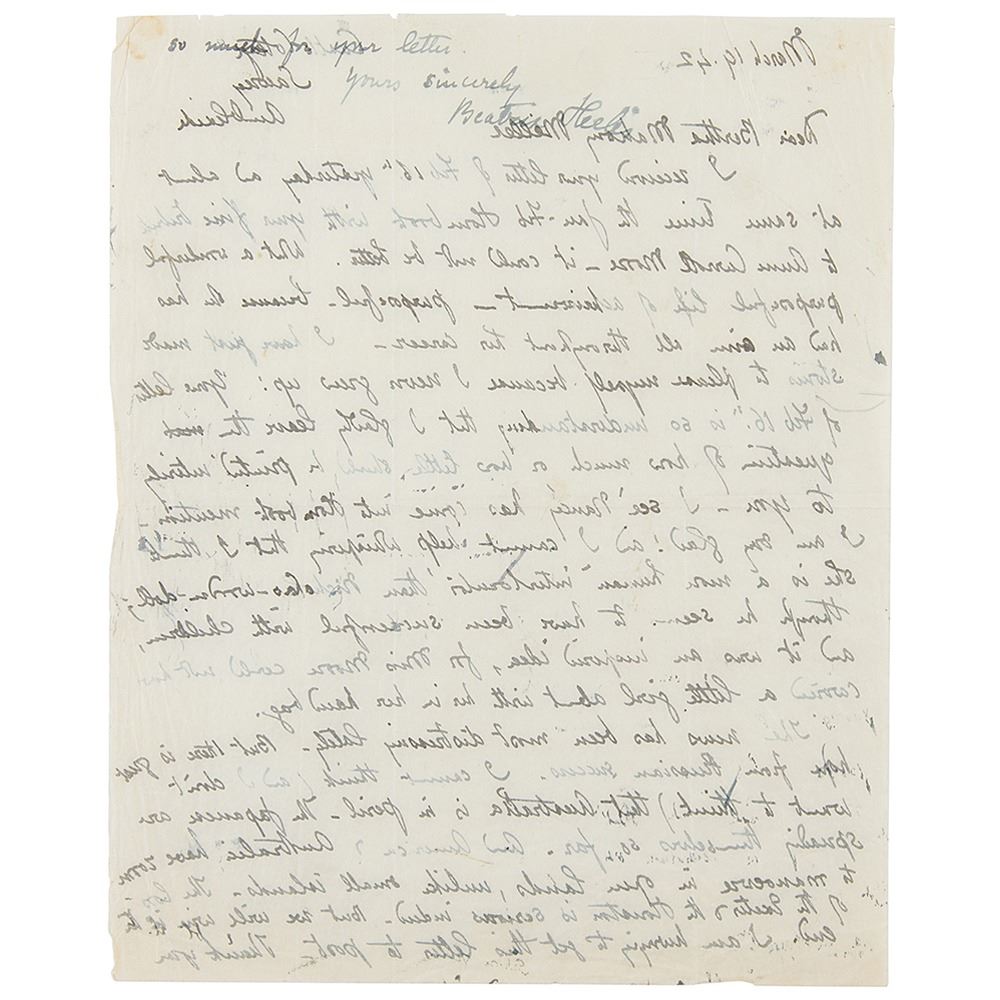 so much for your letter.
Yours sincerely
Beatrix Heelis
March 19. 42
Sawrey
Ambleside
Dear Bertha Mahony Miller
I received your letter of Feb 16th yesterday and about
at same time the Jan-Feb Horn book with your fine tribute
to Anne Carroll Moore – it could not be better. What a wonderful
purposeful life of achievement – purposeful – because she has
had an aim all throughout her career – I have just made
stories to please myself because I never grew up! Your letter
of Feb 16th is so understanding that I gladly leave the
question of how much or how little should be printed entirely
to you – I see 'Nancy' has come into Horn book mention –
I am very glad! and I cannot help whispering that I think
she is a more "human" interlocutor than Nicholas – wooden – doll;
though he seems to have been successful with children,
and it was an inspired idea, for Miss Moore could not have
carried a little girl about with her in her hand bag.
The news has been most distressing lately – But there is great
hope from Russian success. I cannot think (and I don't
want to think!) that Australia is in peril – The Japanese are
spreading themselves so far. And America & Australia have room
to manoevre in given lands, unlike small islands. The loss
of the Exeter & the Houston is serious indeed – But we will win it in
end. I am hurrying to get this letter to post – Thank you